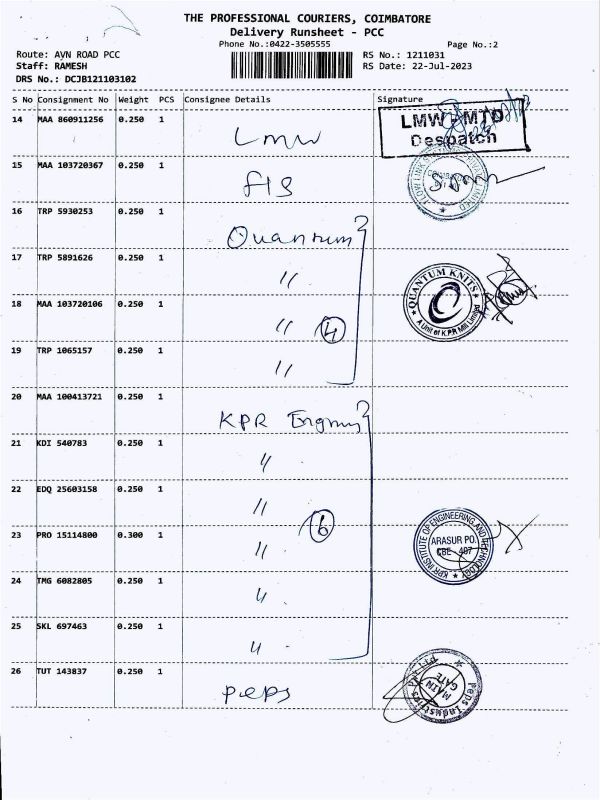 THE PROFESSIONAL COURIERS, COIMBATORE
Delivery Runsheet - PCC
Phone No.:0422-3505555 Page No.:2
Route: AVN ROAD PCC RS No.: 1211031
Staff: RAMESH RS Date: 22-Jul-2023
DRS No.: DCJB121103102
S No Consignment No Weight PCS Consignee Details Signature
14 MAA 860911256 0.250 1 LMW LMW-MTD
Despatch
15 MAA 103720367 0.250 1
16 TRP 5930253 0.250 1 Quantum
17 TRP 5891626 0.250 1 " QUANTUM KNITS
A Unit of K.P.R Mill Limited
18 MAA 103720106 0.250 1 " 4
19 TRP 1065157 0.250 1 "
20 MAA 100413721 0.250 1 KPR
21 KDI 540783 0.250 1 "
22 EDQ 25603158 0.250 1 " 6
23 PRO 15114800 0.300 1 " KPR INSTITUTE OF ENGINEERING AND TECHNOLOGY
ARASUR PO.
CBE 407
24 TMG 6082805 0.250 1 "
25 SKL 697463 0.250 1 "
26 TUT 143837 0.250 1 peps Peps Industries Pvt Ltd
MAIN
GATE